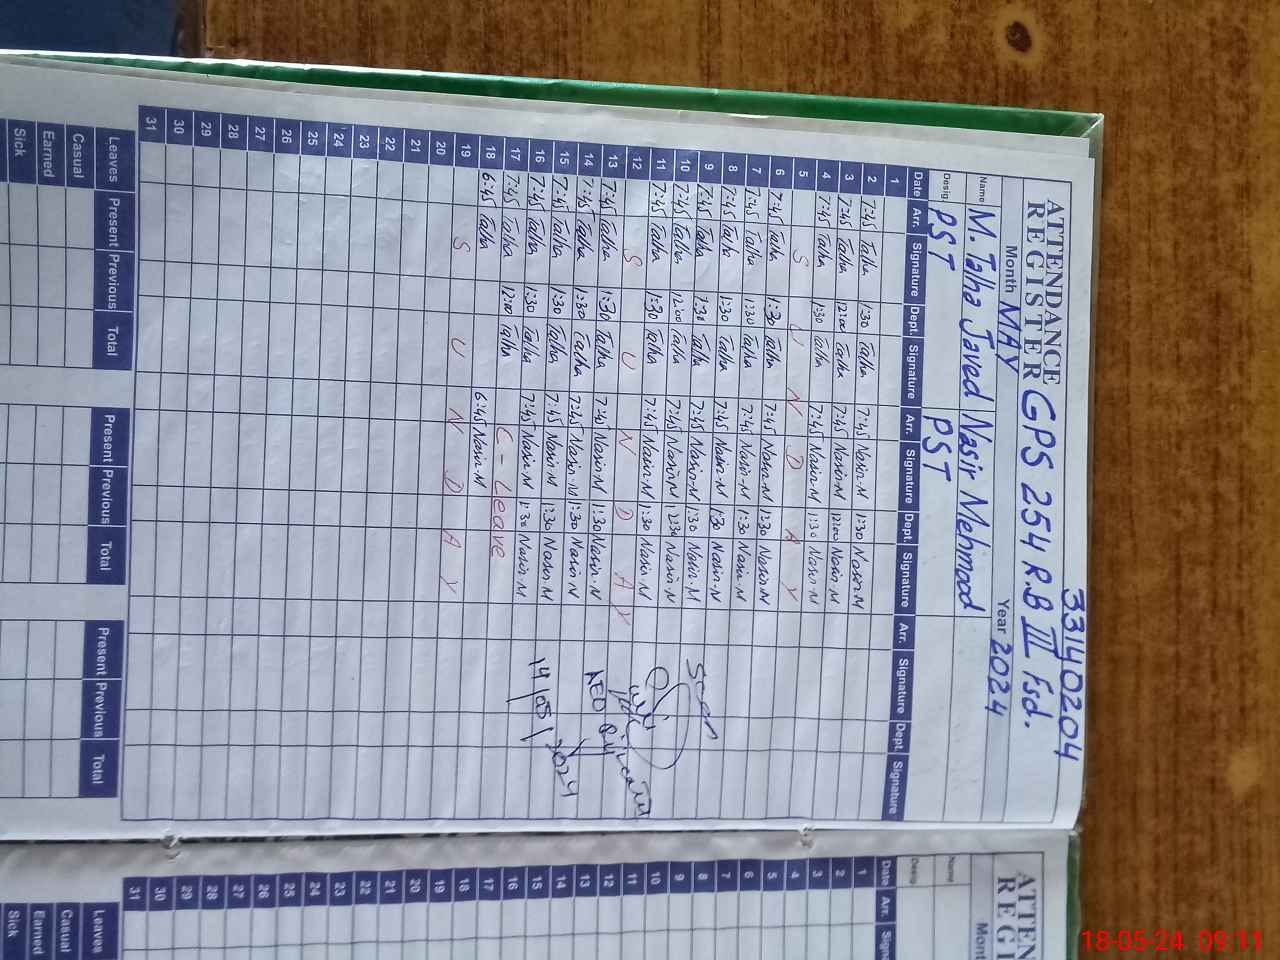 33140204
ATTENDANCE
REGISTER GPS 254 R.B III Fsd.
Month MAY Year 2024
Name M. Talha Javed Nasir Mehmood
Desig. PST PST
Date Arr. Signature Dept. Signature Arr. Signature Dept. Signature Arr. Signature Dept. Signature
1
2 7:45 Talha 1:30 Talha 7:45 Nasir-M 1:30 Nasir-M
3 7:45 Talha 12:00 Talha 7:45 Nasir-M 12:00 Nasir-M
4 7:45 Talha 1:30 Talha 7:45 Nasir-M 1:30 Nasir-M
5 S U N D A Y
6 7:45 Talha 1:30 Talha 7:45 Nasir-M 1:30 Nasir-M
7 7:45 Talha 1:30 Talha 7:45 Nasir-M 1:30 Nasir-M
8 7:45 Talha 1:30 Talha 7:45 Nasir-M 1:30 Nasir-M
9 7:45 Talha 1:30 Talha 7:45 Nasir-M 1:30 Nasir-M
10 7:45 Talha 12:00 Talha 7:45 Nasir-M 12:30 Nasir-M
11 7:45 Talha 1:30 Talha 7:45 Nasir-M 1:30 Nasir-M
12 S U N D A Y
13 7:45 Talha 1:30 Talha 7:45 Nasir-M 1:30 Nasir-M
14 7:45 Talha 1:30 Talha 7:45 Nasir-M 1:30 Nasir-M
15 7:45 Talha 1:30 Talha 7:45 Nasir-M 1:30 Nasir-M
16 7:45 Talha 1:30 Talha 7:45 Nasir-M 1:30 Nasir-M
17 7:45 Talha 12:00 Talha C-Leave
18 6:45 Talha 6:45 Nasir-M
19 S U N D A Y
20
21
22
23
24
25
26
27
28
29
30
31
Seen
AEO
14/05/2024
Leaves Present Previous Total Present Previous Total Present Previous Total
Casual
Earned
Sick
ATTEN
REGI
Mont
Name
Desig
Date Arr. Signa
1
2
3
4
5
6
7
8
9
10
11
12
13
14
15
16
17
18
19
20
21
22
23
24
25
26
27
28
29
30
31
Leaves
Casual
Earned
Sick
18-05-24 09:11